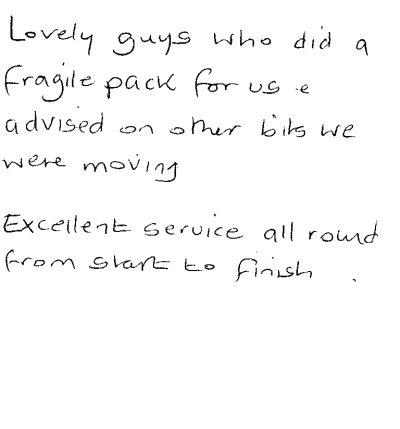 Lovely guys who did a
fragile pack for us e
advised on other bits we
were moving
Excellent service all round
from start to finish .